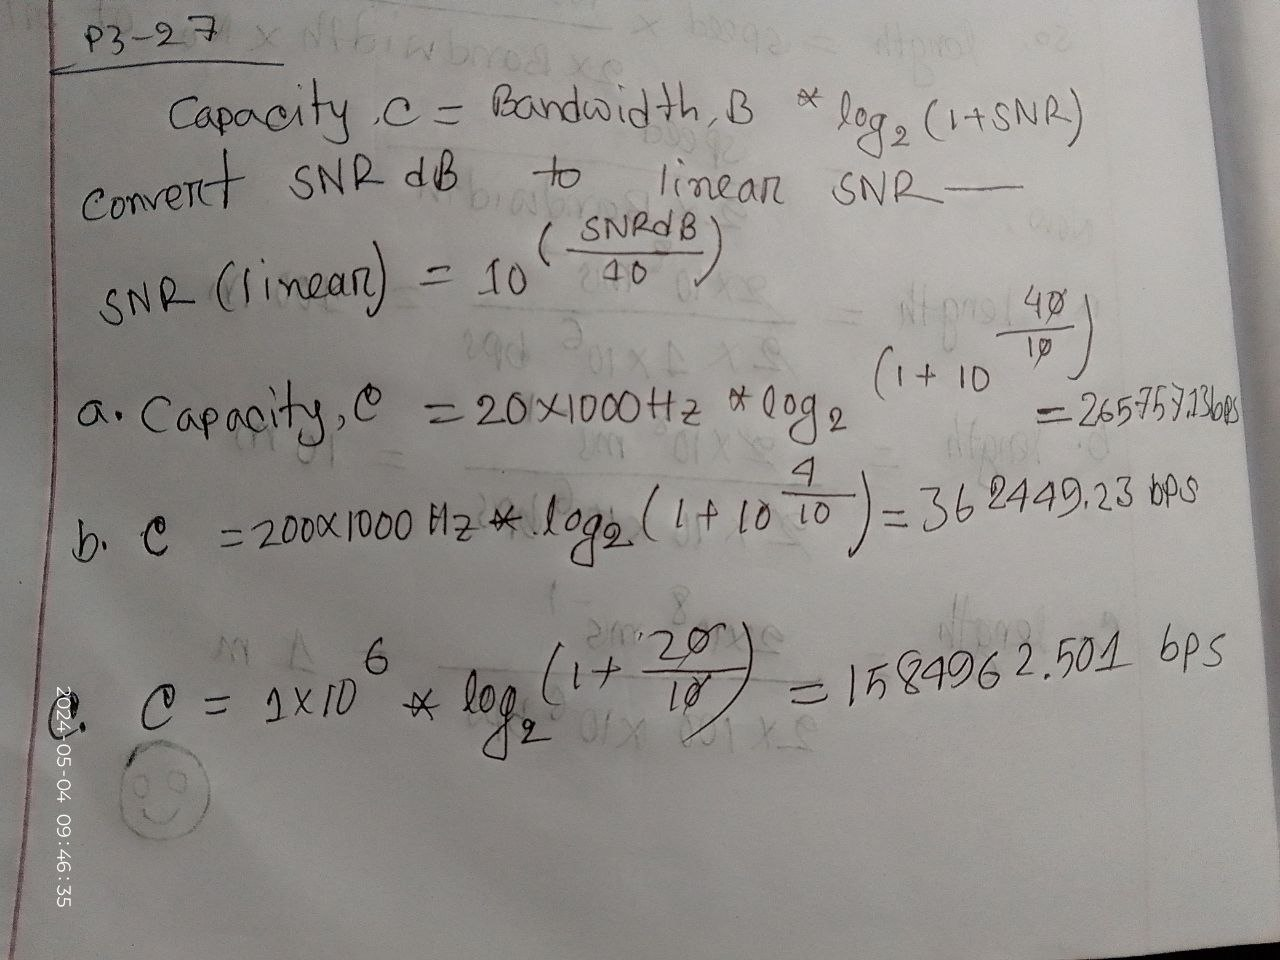 P3-27
Capacity, C = Bandwidth, B * log2 (1+SNR)
Convert SNR dB to linear SNR —
SNR (linear) = 10^(SNRdB/10)
a. Capacity, C = 20×1000Hz * log2 (1+10^(40/10)) = 265757.13bps
b. C = 200×1000 Hz * log2 (1+10^(4/10)) = 362449.23 bps
c. C = 1×10^6 * log2 (1+20/10) = 1584962.501 bps
2024-05-04 09:46:35